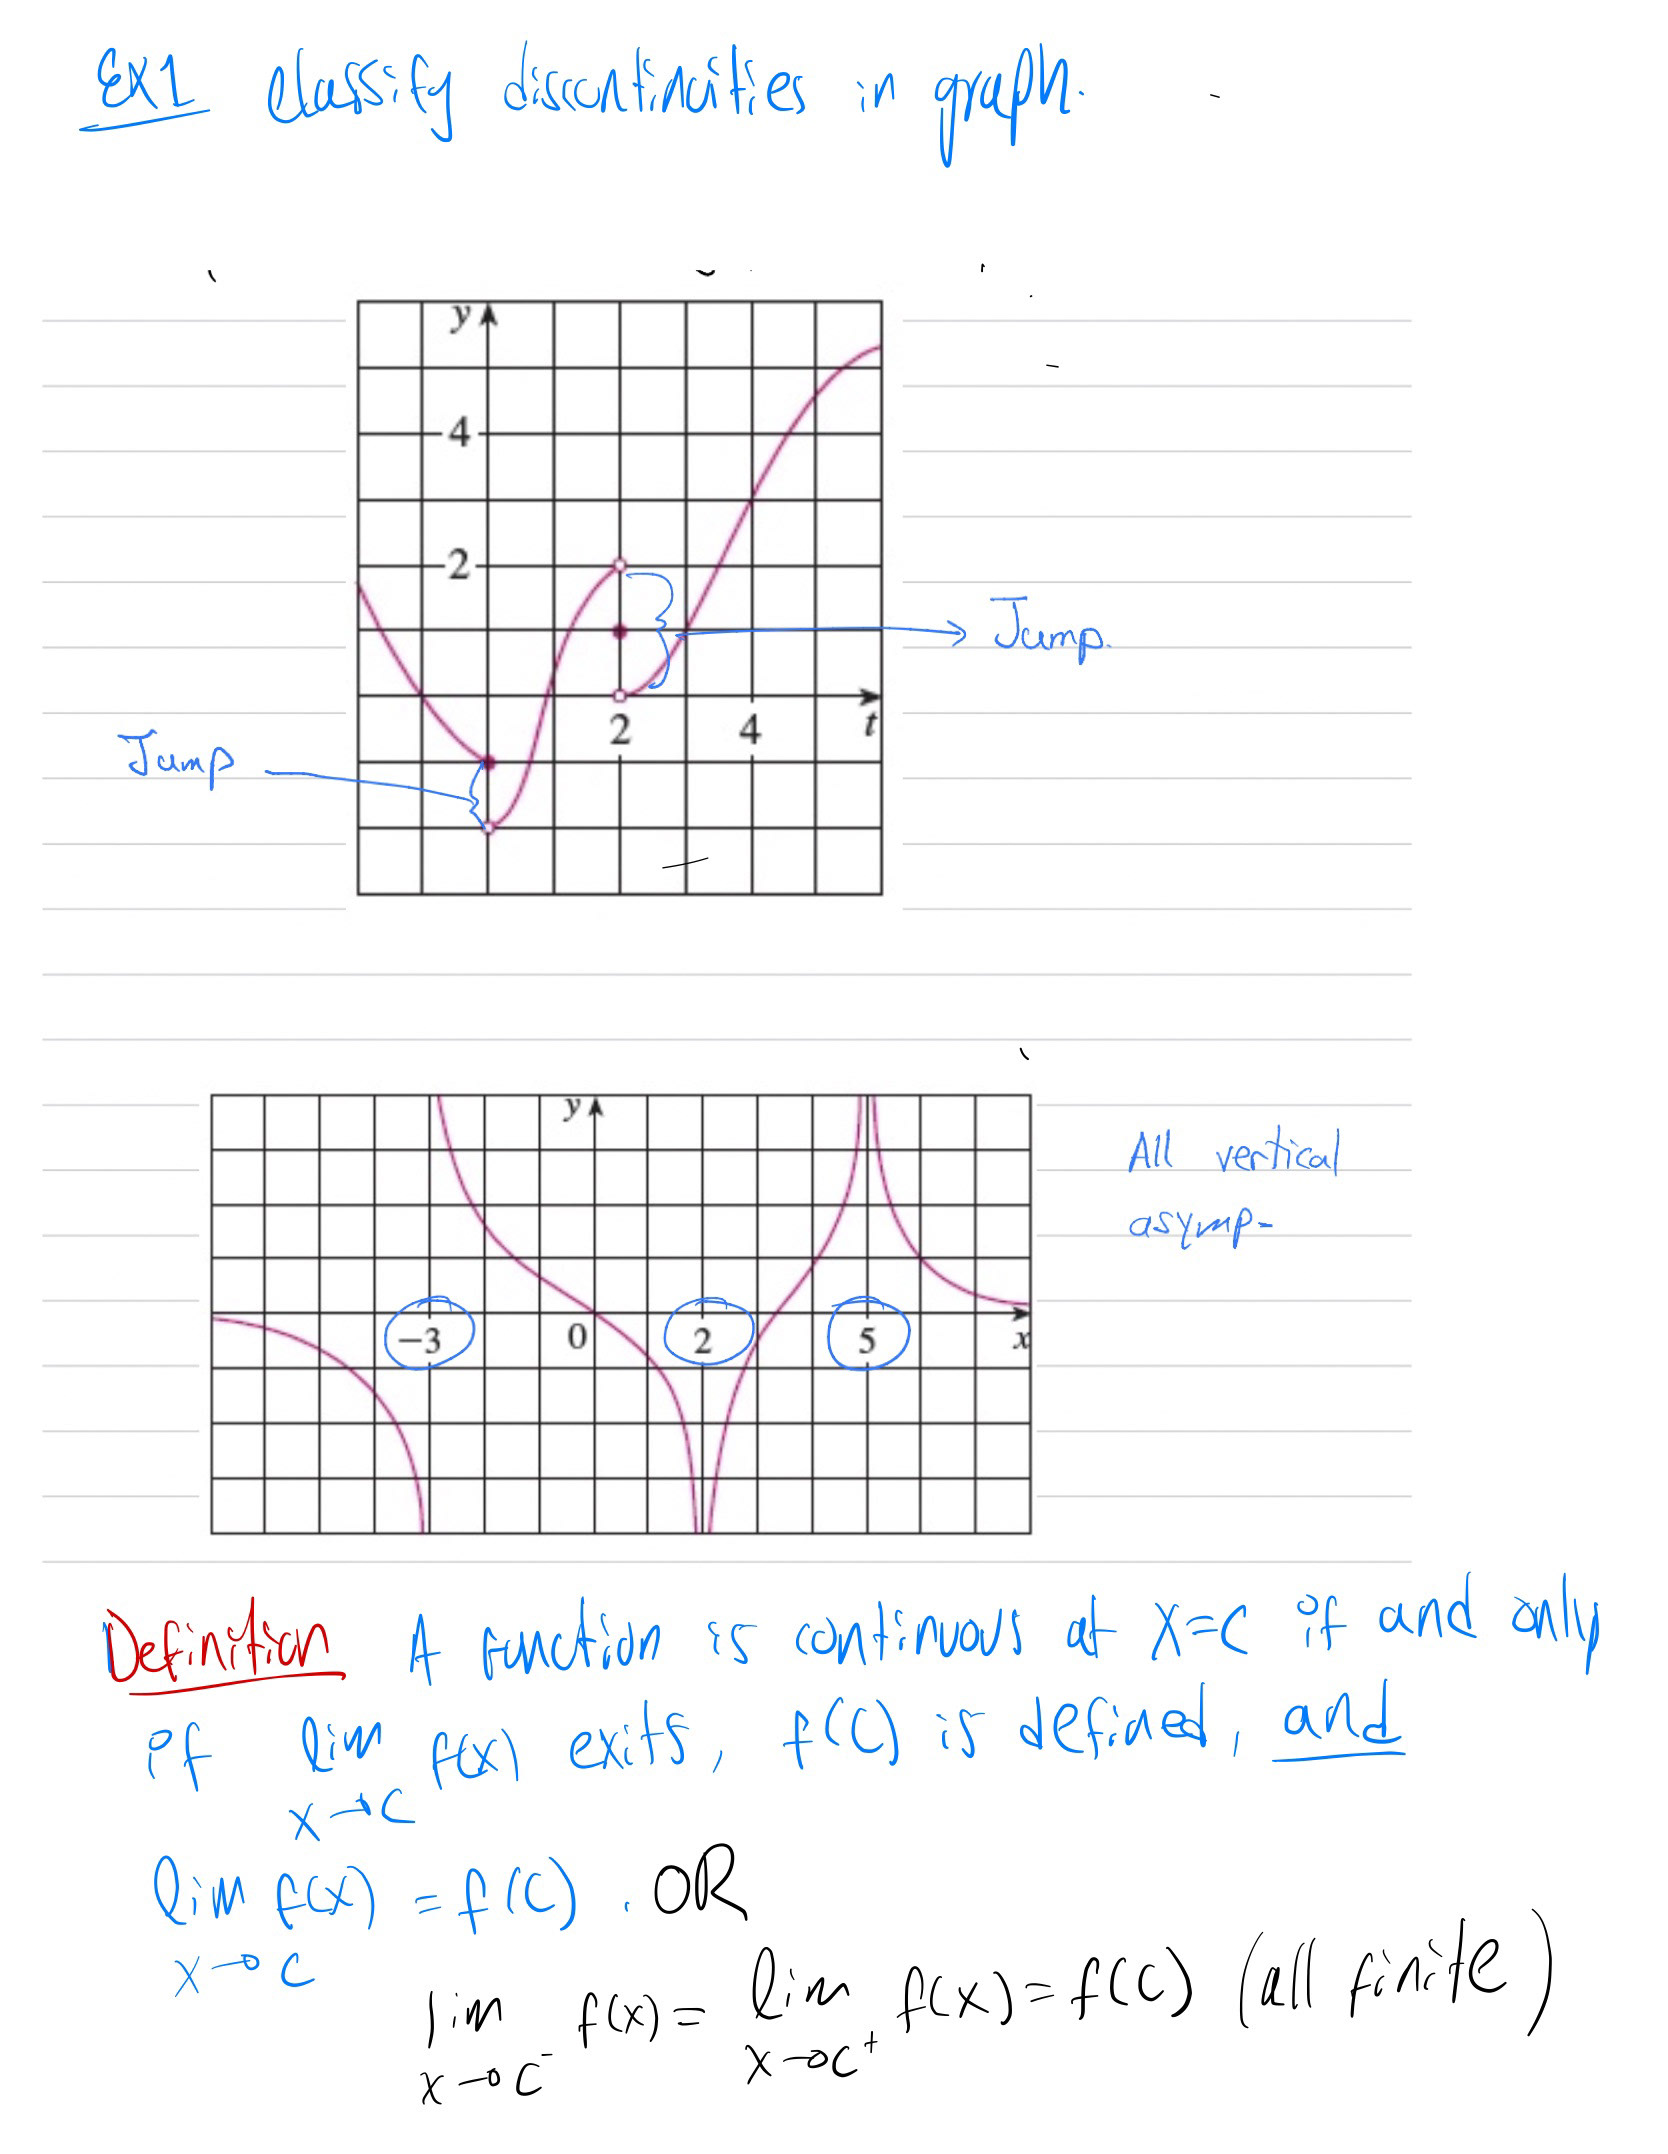 EX1 classify discontinuities in graph.
y
4
2
Jump.
2 4 t
Jump
y
All vertical
asymp-
-3 0 2 5 x
Definition A function is continuous at x=c if and only
if lim f(x) exits, f(c) is defined, and
x→c
lim f(x) = f(c). OR
x→c
lim f(x) = lim f(x) = f(c) (all finite)
x→c⁻ x→c⁺